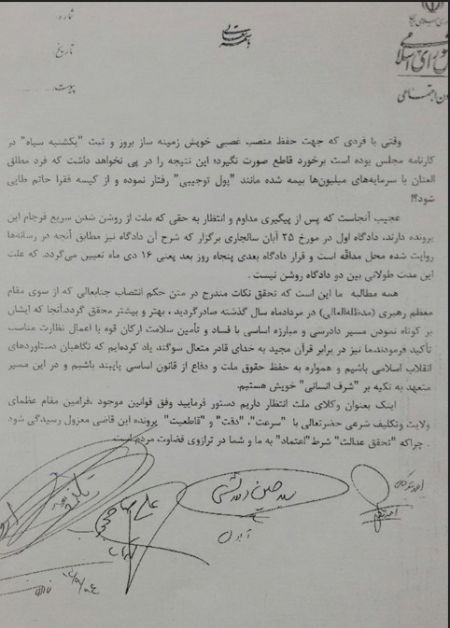 شماره:
تاریخ
پیوست:
وقتی با فردی که جهت حفظ منصب غصبی خویش زمینه ساز بروز و ثبت "یکشنبه سیاه" در
کارنامه مجلس بوده است برخورد قاطع صورت نگیرد؛ این نتیجه را در پی نخواهد داشت که فرد مطلق
العنان با سرمایه‌های میلیون‌ها بیمه شده مانند "پول توجیبی" رفتار نموده و از کیسه فقرا حاتم طایی
شود؟!
عجیب آنجاست که پس از پیگیری مداوم و انتظار به حقی که ملت از روشن شدن سریع فرجام این
پرونده دارند، دادگاه اول در مورخ ۲۵ آبان سالجاری برگزار که شرح آن دادگاه نیز مطابق آنچه در رسانه‌ها
روایت شده محل مداقه است و قرار دادگاه بعدی پنجاه روز بعد یعنی ۱۶ دی ماه تعیین می‌گردد، که علت
این مدت طولانی بین دو دادگاه روشن نیست.
همه مطالبه ما این است که تحقق نکات مندرج در متن حکم انتصاب جنابعالی که از سوی مقام
معظم رهبری (مدظله‌العالی) در مردادماه سال گذشته صادر گردید، بهتر و بیشتر محقق گردد. آنجا که ایشان
بر کوتاه نمودن مسیر دادرسی و مبارزه اساسی با فساد و تأمین سلامت ارکان قوه با اعمال نظارت مناسب
تأکید فرمودند. ما نیز در برابر قرآن مجید به خدای قادر متعال سوگند یاد کرده‌ایم که نگاهبان دستاوردهای
انقلاب اسلامی باشیم و همواره به حفظ حقوق ملت و دفاع از قانون اساسی پایبند باشیم و در این مسیر
متعهد به تکیه بر "شرف انسانی" خویش هستیم.
اینک بعنوان وکلای ملت انتظار داریم دستور فرمایید وفق قوانین موجود، فرامین مقام عظمای
ولایت و تکلیف شرعی حضرتعالی با "سرعت"، "دقت" و "قاطعیت" پرونده این قاضی معزول رسیدگی شود
. چراکه "تحقق عدالت" شرط "اعتماد" به ما و شما در ترازوی قضاوت مردم است.